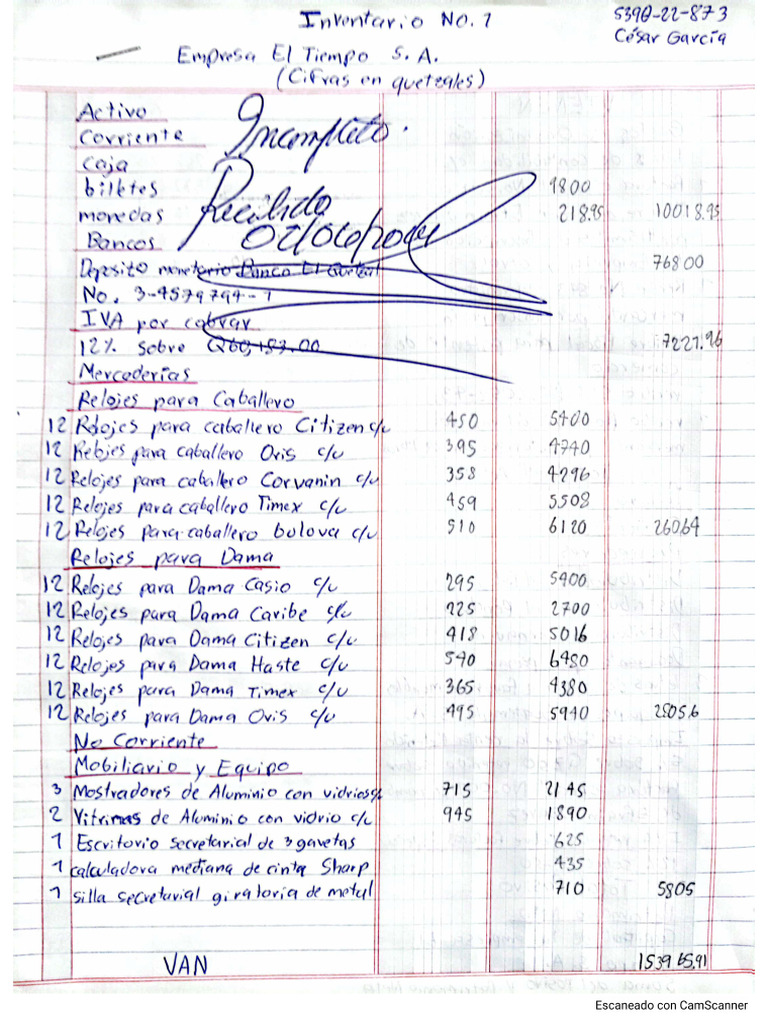 Inventario No. 1
5390-22-873
César García
Empresa El Tiempo S. A.
(Cifras en quetzales)
Activo
Corriente
Incompleto.
Caja
billetes 9800
monedas 218.95 10018.95
Recibido
Bancos
Deposito monetario Banco El Quetzal 76800
No. 3-4579794-1
IVA por cobrar
12% sobre Q60,183.00 7221.96
Mercaderías
Relojes para Caballero
12 Relojes para caballero Citizen c/u 450 5400
12 Relojes para caballero Oris c/u 395 4740
12 Relojes para caballero Corvanin c/u 358 4296
12 Relojes para caballero Timex c/u 459 5508
12 Relojes para caballero bolova c/u 510 6120 26064
Relojes para Dama
12 Relojes para Dama Casio c/u 295 5400
12 Relojes para Dama Caribe c/u 225 2700
12 Relojes para Dama Citizen c/u 418 5016
12 Relojes para Dama Haste c/u 540 6480
12 Relojes para Dama Timex c/u 365 4380
12 Relojes para Dama Oris c/u 495 5940 28056
No Corriente
Mobiliario y Equipo
3 Mostradores de Aluminio con vidrios c/u 715 2145
2 Vitrinas de Aluminio con vidrio c/u 945 1890
1 Escritorio secretarial de 3 gavetas 625
1 calculadora mediana de cinta Sharp 435
1 silla secretarial giratoria de metal 710 5805
VAN 153965.91
Escaneado con CamScanner